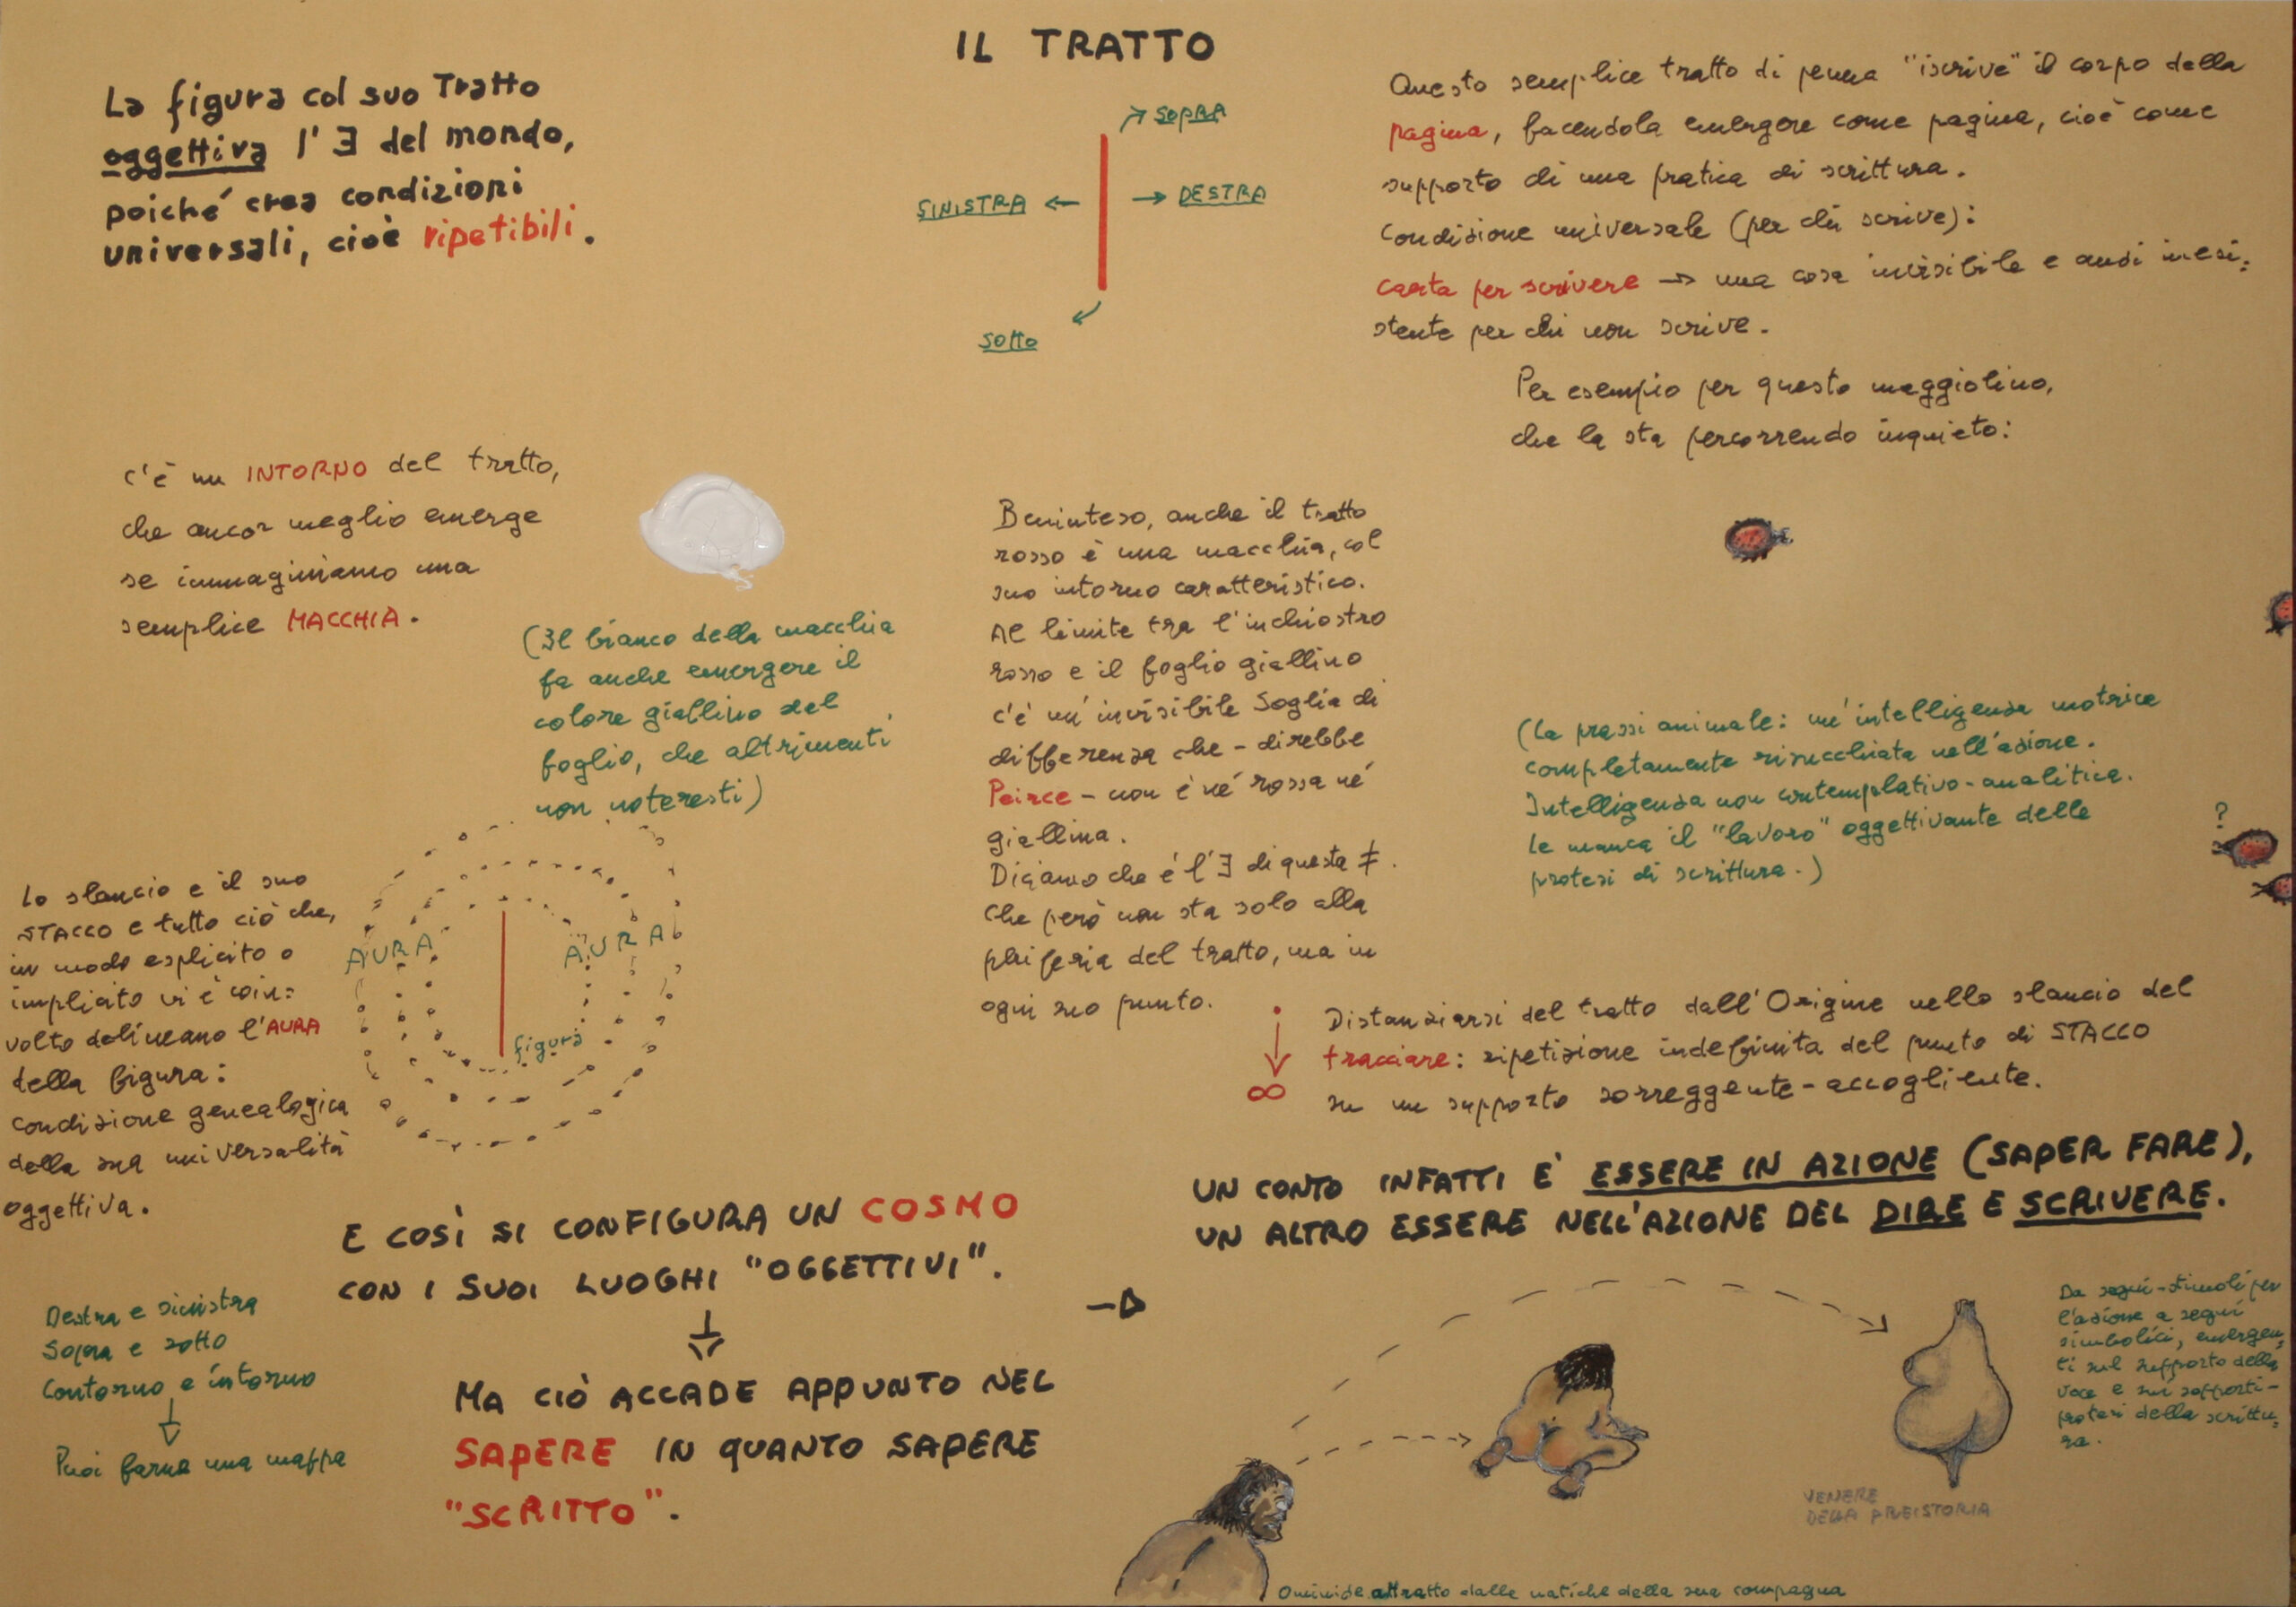 IL TRATTO
La figura col suo Tratto
oggettiva l'∃ del mondo,
poiché crea condizioni
universali, cioè ripetibili.
SOPRA
SINISTRA ← → DESTRA
SOTTO
Questo semplice tratto di penna "iscrive" il corpo della
pagina, facendola emergere come pagina, cioè come
supporto di una pratica di scrittura.
Condizione universale (per chi scrive):
carta per scrivere → una cosa invisibile e anzi inesi=
stente per chi non scrive.
Per esempio per questo maggiolino,
che la sta percorrendo inquieto:
C'è un INTORNO del tratto,
che ancor meglio emerge
se immaginiamo una
semplice MACCHIA.
(Il bianco della macchia
fa anche emergere il
colore giallino del
foglio, che altrimenti
non noteresti)
Beninteso, anche il tratto
rosso è una macchia, col
suo intorno caratteristico.
Al limite tra l'inchiostro
rosso e il foglio giallino
c'è un'invisibile Soglia di
differenza che - direbbe
Peirce - non è né rossa né
giallina.
Diciamo che è l'∃ di questa ≠.
Che però non sta solo alla
periferia del tratto, ma in
ogni suo punto.
(La prassi animale: un'intelligenza motrice
completamente risucchiata nell'azione.
Intelligenza non contemplativo-analitica.
Le manca il "lavoro" oggettivante delle
protesi di scrittura.)
?
Lo slancio e il suo
STACCO e tutto ciò che,
in modo esplicito o
implicito vi è coin=
volto delineano l'AURA
della figura:
condizione genealogica
della sua universalità
oggettiva.
AURA AURA
figura
∞
Distanziarsi del tratto dall'Origine nello slancio del
tracciare: ripetizione indefinita del punto di STACCO
su un supporto sorreggente-accogliente.
E COSÌ SI CONFIGURA UN COSMO
CON I SUOI LUOGHI "OGGETTIVI".
MA CIÒ ACCADE APPUNTO NEL
SAPERE IN QUANTO SAPERE
"SCRITTO".
Destra e sinistra
Sopra e sotto
Contorno e intorno
Puoi farne una mappa
UN CONTO INFATTI E' ESSERE IN AZIONE (SAPER FARE),
UN ALTRO ESSERE NELL'AZIONE DEL DIRE E SCRIVERE.
Da segni-stimoli per
l'azione a segni
simbolici, emergen=
ti sul supporto della
voce e sui supporti-
protesi della scrittu=
ra.
VENERE
DELLA PREISTORIA
Ominide attratto dalle natiche della sua compagna